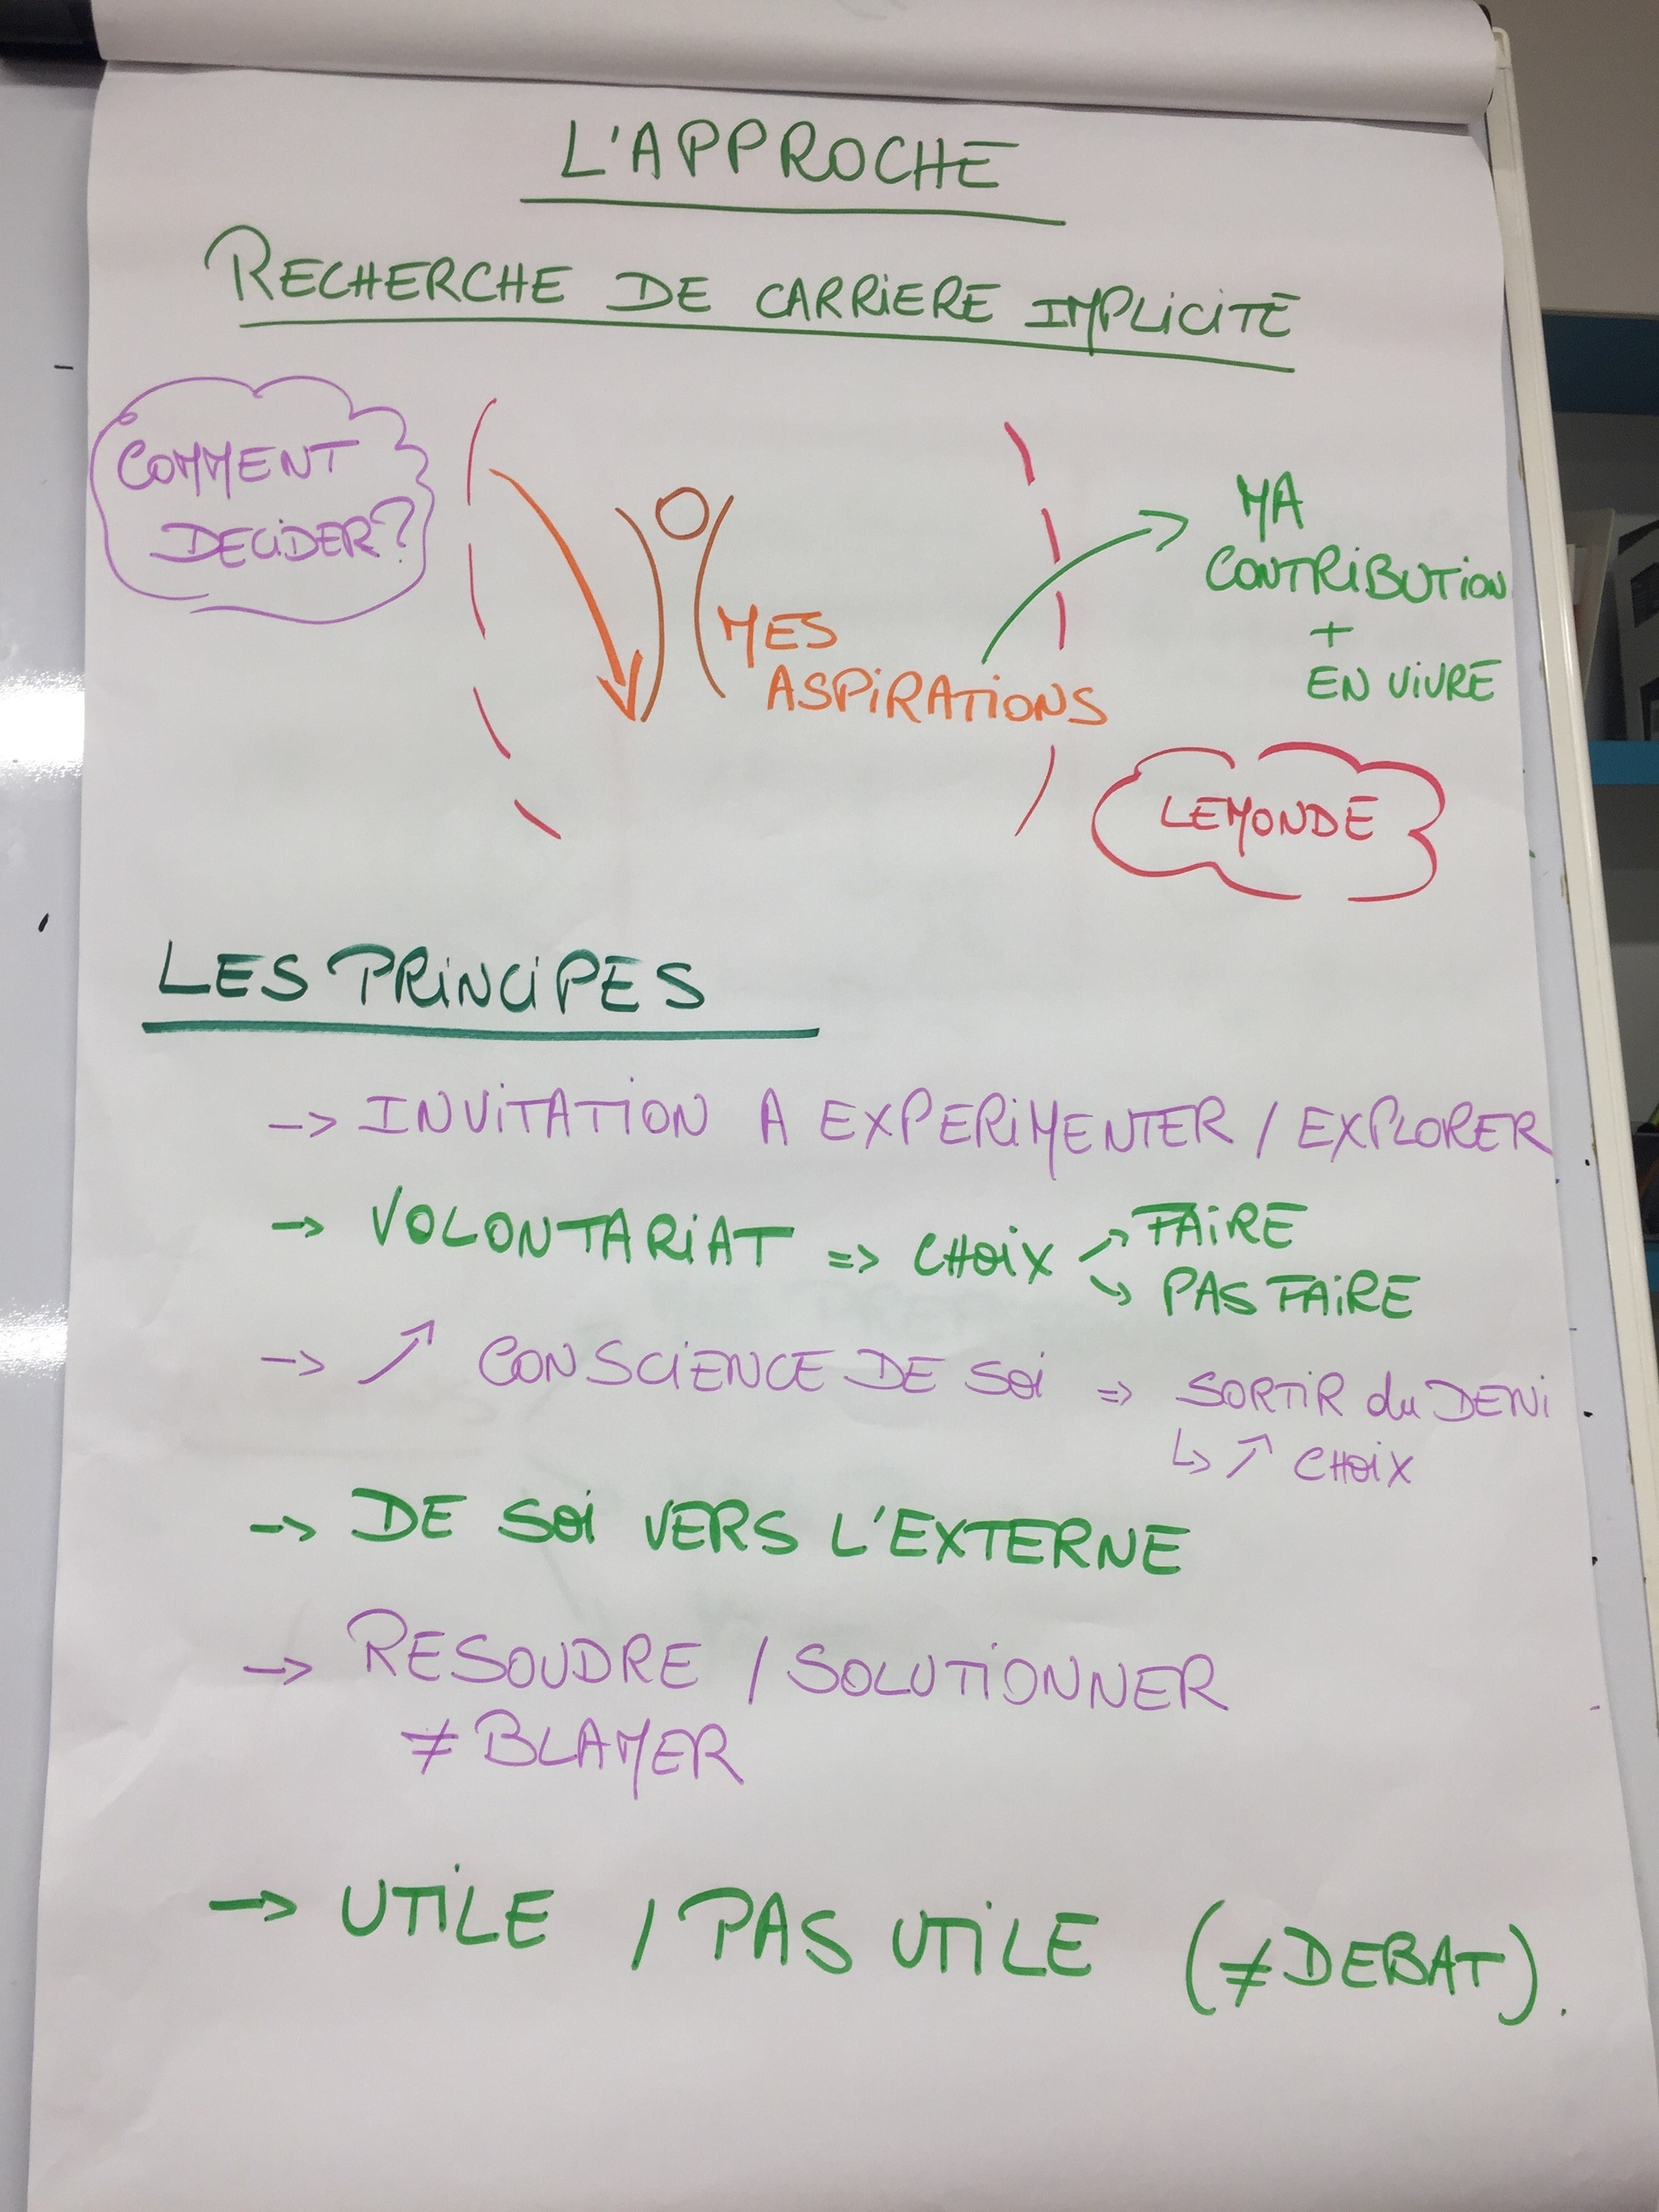 L'APPROCHE
RECHERCHE DE CARRIERE IMPLICITE
COMMENT
DECIDER?
MES
ASPIRATIONS
MA
CONTRIBUTION
+
EN VIVRE
LE MONDE
LES PRINCIPES
-> INVITATION A EXPERIMENTER / EXPLORER
-> VOLONTARIAT => CHOIX ↗ FAIRE
↘ PAS FAIRE
-> ↗ CONSCIENCE DE SOI => SORTIR du DENI
↳ ↗ CHOIX
-> DE SOI VERS L'EXTERNE
-> RESOUDRE / SOLUTIONNER
≠ BLAMER
-> UTILE / PAS UTILE (≠ DEBAT).